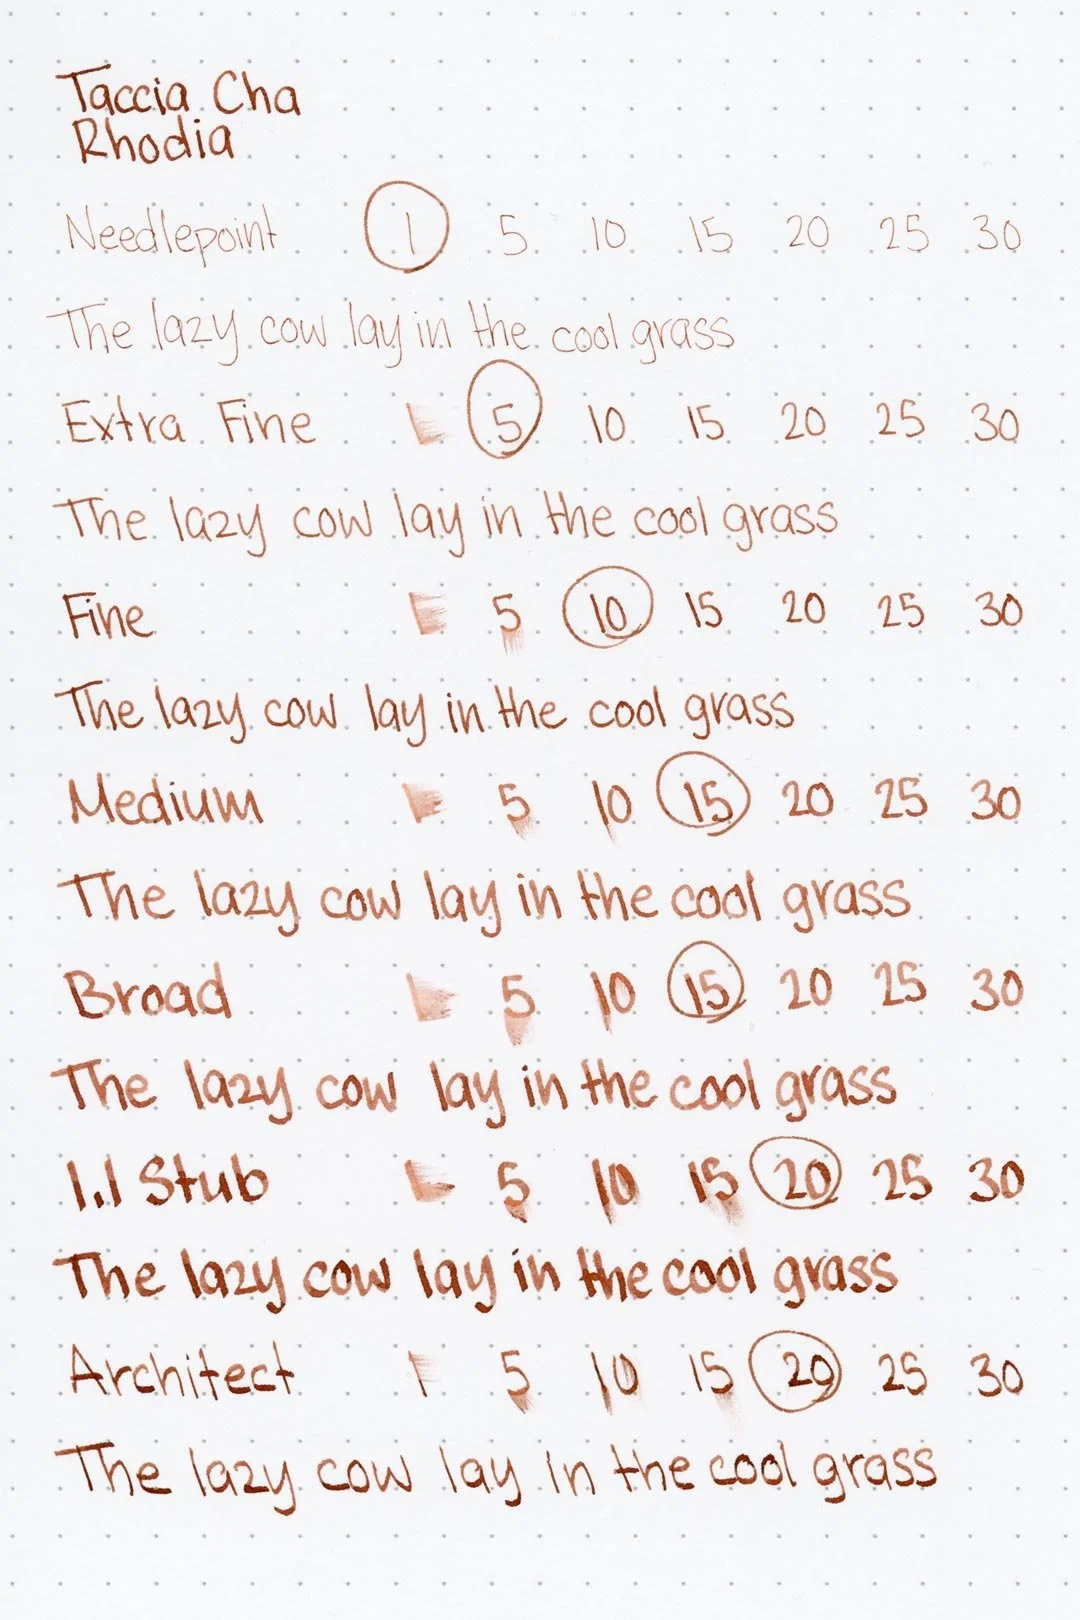 Taccia Cha
Rhodia
Needlepoint 1 5 10 15 20 25 30
The lazy cow lay in the cool grass
Extra Fine 1 5 10 15 20 25 30
The lazy cow lay in the cool grass
Fine 1 5 10 15 20 25 30
The lazy cow lay in the cool grass
Medium 1 5 10 15 20 25 30
The lazy cow lay in the cool grass
Broad 1 5 10 15 20 25 30
The lazy cow lay in the cool grass
1.1 Stub 1 5 10 15 20 25 30
The lazy cow lay in the cool grass
Architect 1 5 10 15 20 25 30
The lazy cow lay in the cool grass